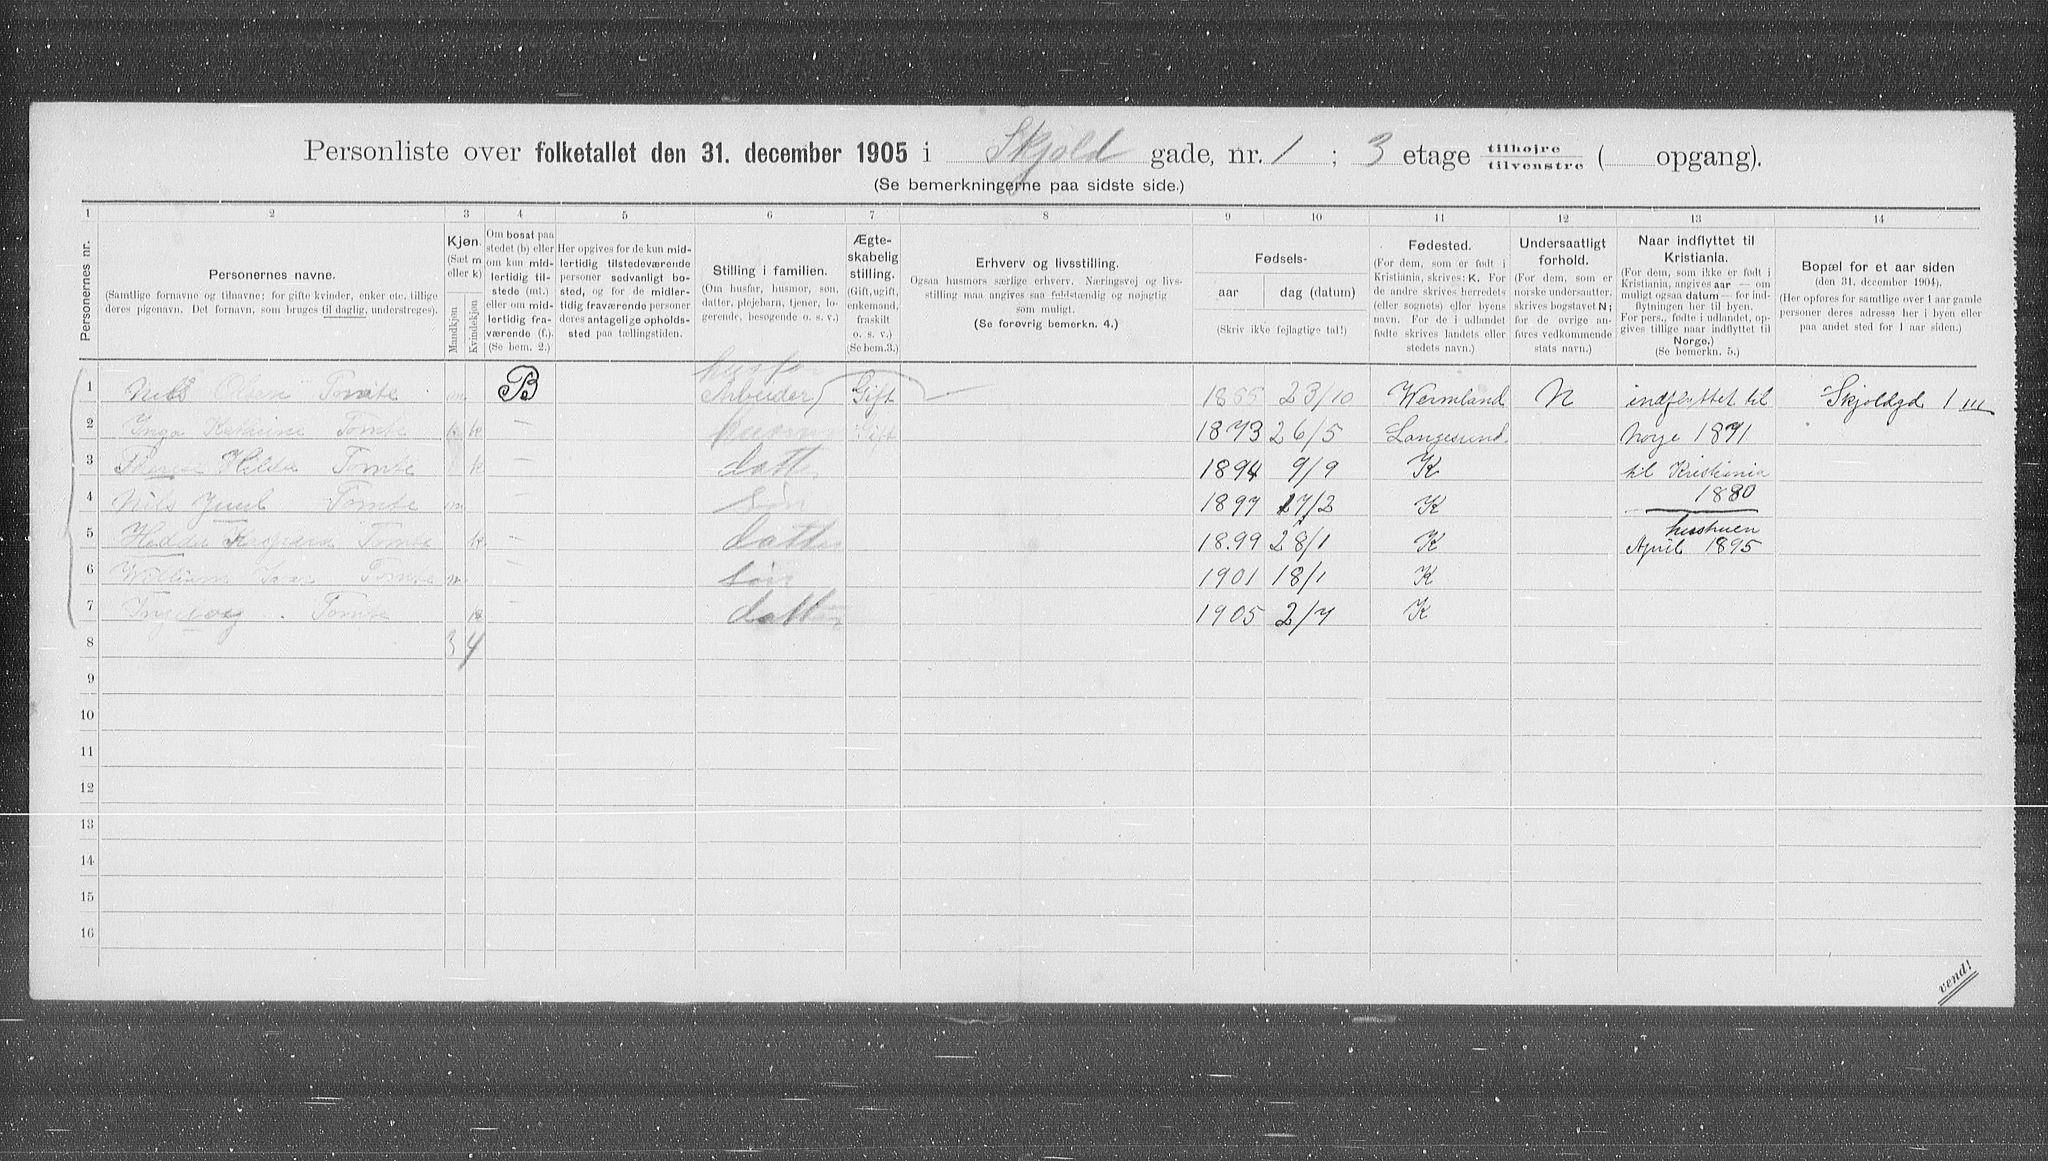 Personliste over folketallet den 31. december 1905 i Skjold gade, nr. 1 ; 3 etage tilhøjre tilvenstre ( opgang).
(Se bemerkningerne paa sidste side.)
1 2 3 4 5 6 7 8 9 10 11 12 13 14
Personernes nr.
Personernes navne.
(Samtlige fornavne og tilnavne; for gifte kvinder, enker etc. tillige
deres pigenavn. Det fornavn, som bruges til daglig, understreges).
Kjøn.
(Sæt m
eller k)
Mandkjøn
Kvindekjøn
Om bosat paa
stedet (b) eller
om kun mid-
lertidig til-
stede (mt.)
eller om mid-
lertidig fra-
værende (f.).
(Se bem. 2.)
Her opgives for de kun mid-
lertidig tilstedeværende
personer sedvanligt bo-
sted, og for de midler-
tidig fraværende personer
deres antagelige opholds-
sted paa tællingstiden.
Stilling i familien.
(Om husfar, husmor, søn,
datter, plejebarn, tjener, lo-
gerende, besøgende o. s. v.)
Ægte-
skabelig
stilling.
(Gift, ugift,
enkemand,
fraskilt
o. s. v.)
(Se bem.3.)
Erhverv og livsstilling.
Ogsaa husmors særlige erhverv. Næringsvej og livs-
stilling maa angives saa fuldstændig og nøjagtig
som muligt.
(Se forøvrig bemerkn. 4.)
Fødsels-
aar dag (datum)
(Skriv ikke fejlagtige tal!)
Fødested.
(For dem, som er født i
Kristiania, skrives: K. For
de andre skrives herredets
(eller sognets) eller byens
navn. For de i udlandet
fødte skrives landets eller
stedets navn.)
Undersaatligt
forhold.
(For dem, som er
norske undersaatter,
skrives bogstavet N;
for de øvrige an-
føres vedkommende
stats navn.)
Naar indflyttet til
Kristiania.
(For dem, som ikke er født i
Kristiania, angives aar — om
muligt ogsaa datum — for ind-
flytningen her til byen.
For pers., fødte i udlandet, op-
gives tillige naar indflyttet til
Norge.)
(Se bemerkn. 5.)
Bopæl for et aar siden
(den 31. december 1904).
(Her opføres for samtlige over 1 aar gamle
personer deres adresse her i byen eller
paa andet sted for 1 aar siden.)
1 Nils Olsen Tomte m B husfar Arbeider Gift 23/10 Wermland N indflyttet til Skjoldgd 1 III
2 Inga Tomte k — husmor Gift 1873 26/5 Langesund Norge 1871
3 Hilda Tomte k — datter 1894 9/9 K til Kristiania
4 Nils Juul Tomte m — søn 1897 17/2 K 1880
5 Hedda Tomte k — datter 1899 28/1 K hustruen April 1895
6 William Tomte m — søn 1901 18/1 K
7 Tomte k — datter 1905 2/7 K
8 3 4
9
10
11
12
13
14
15
16
vend!